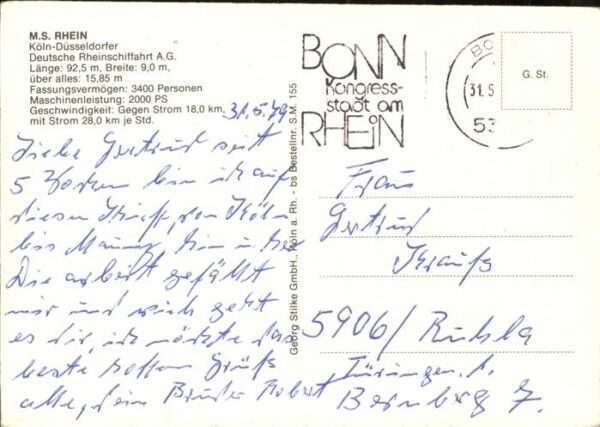 M.S. RHEIN
Köln-Düsseldorfer
Deutsche Rheinschiffahrt A.G.
Länge: 92,5 m, Breite: 9,0 m,
über alles: 15,85 m
Fassungsvermögen: 3400 Personen
Maschinenleistung: 2000 PS
Geschwindigkeit: Gegen Strom 18,0 km,
mit Strom 28,0 km je Std.
Liebe Gertrud seit
5 Wochen bin ich auf
diesem Schiff, von Köln
bis Mainz hin u. her
Die arbeit gefällt
mir und wie geht
es dir, ich möchte das
beste hoffen Grüße
alle, dein Bruder Robert
Georg Stilke GmbH., Köln a. Rh. - bs Bestellnr. S.M. 155
BONN
Kongress-
stadt am
RHEIN
BO
31.5
53
G. St.
Frau
Gertrud
Krauß
5906/ Ruhla
Thüringen.